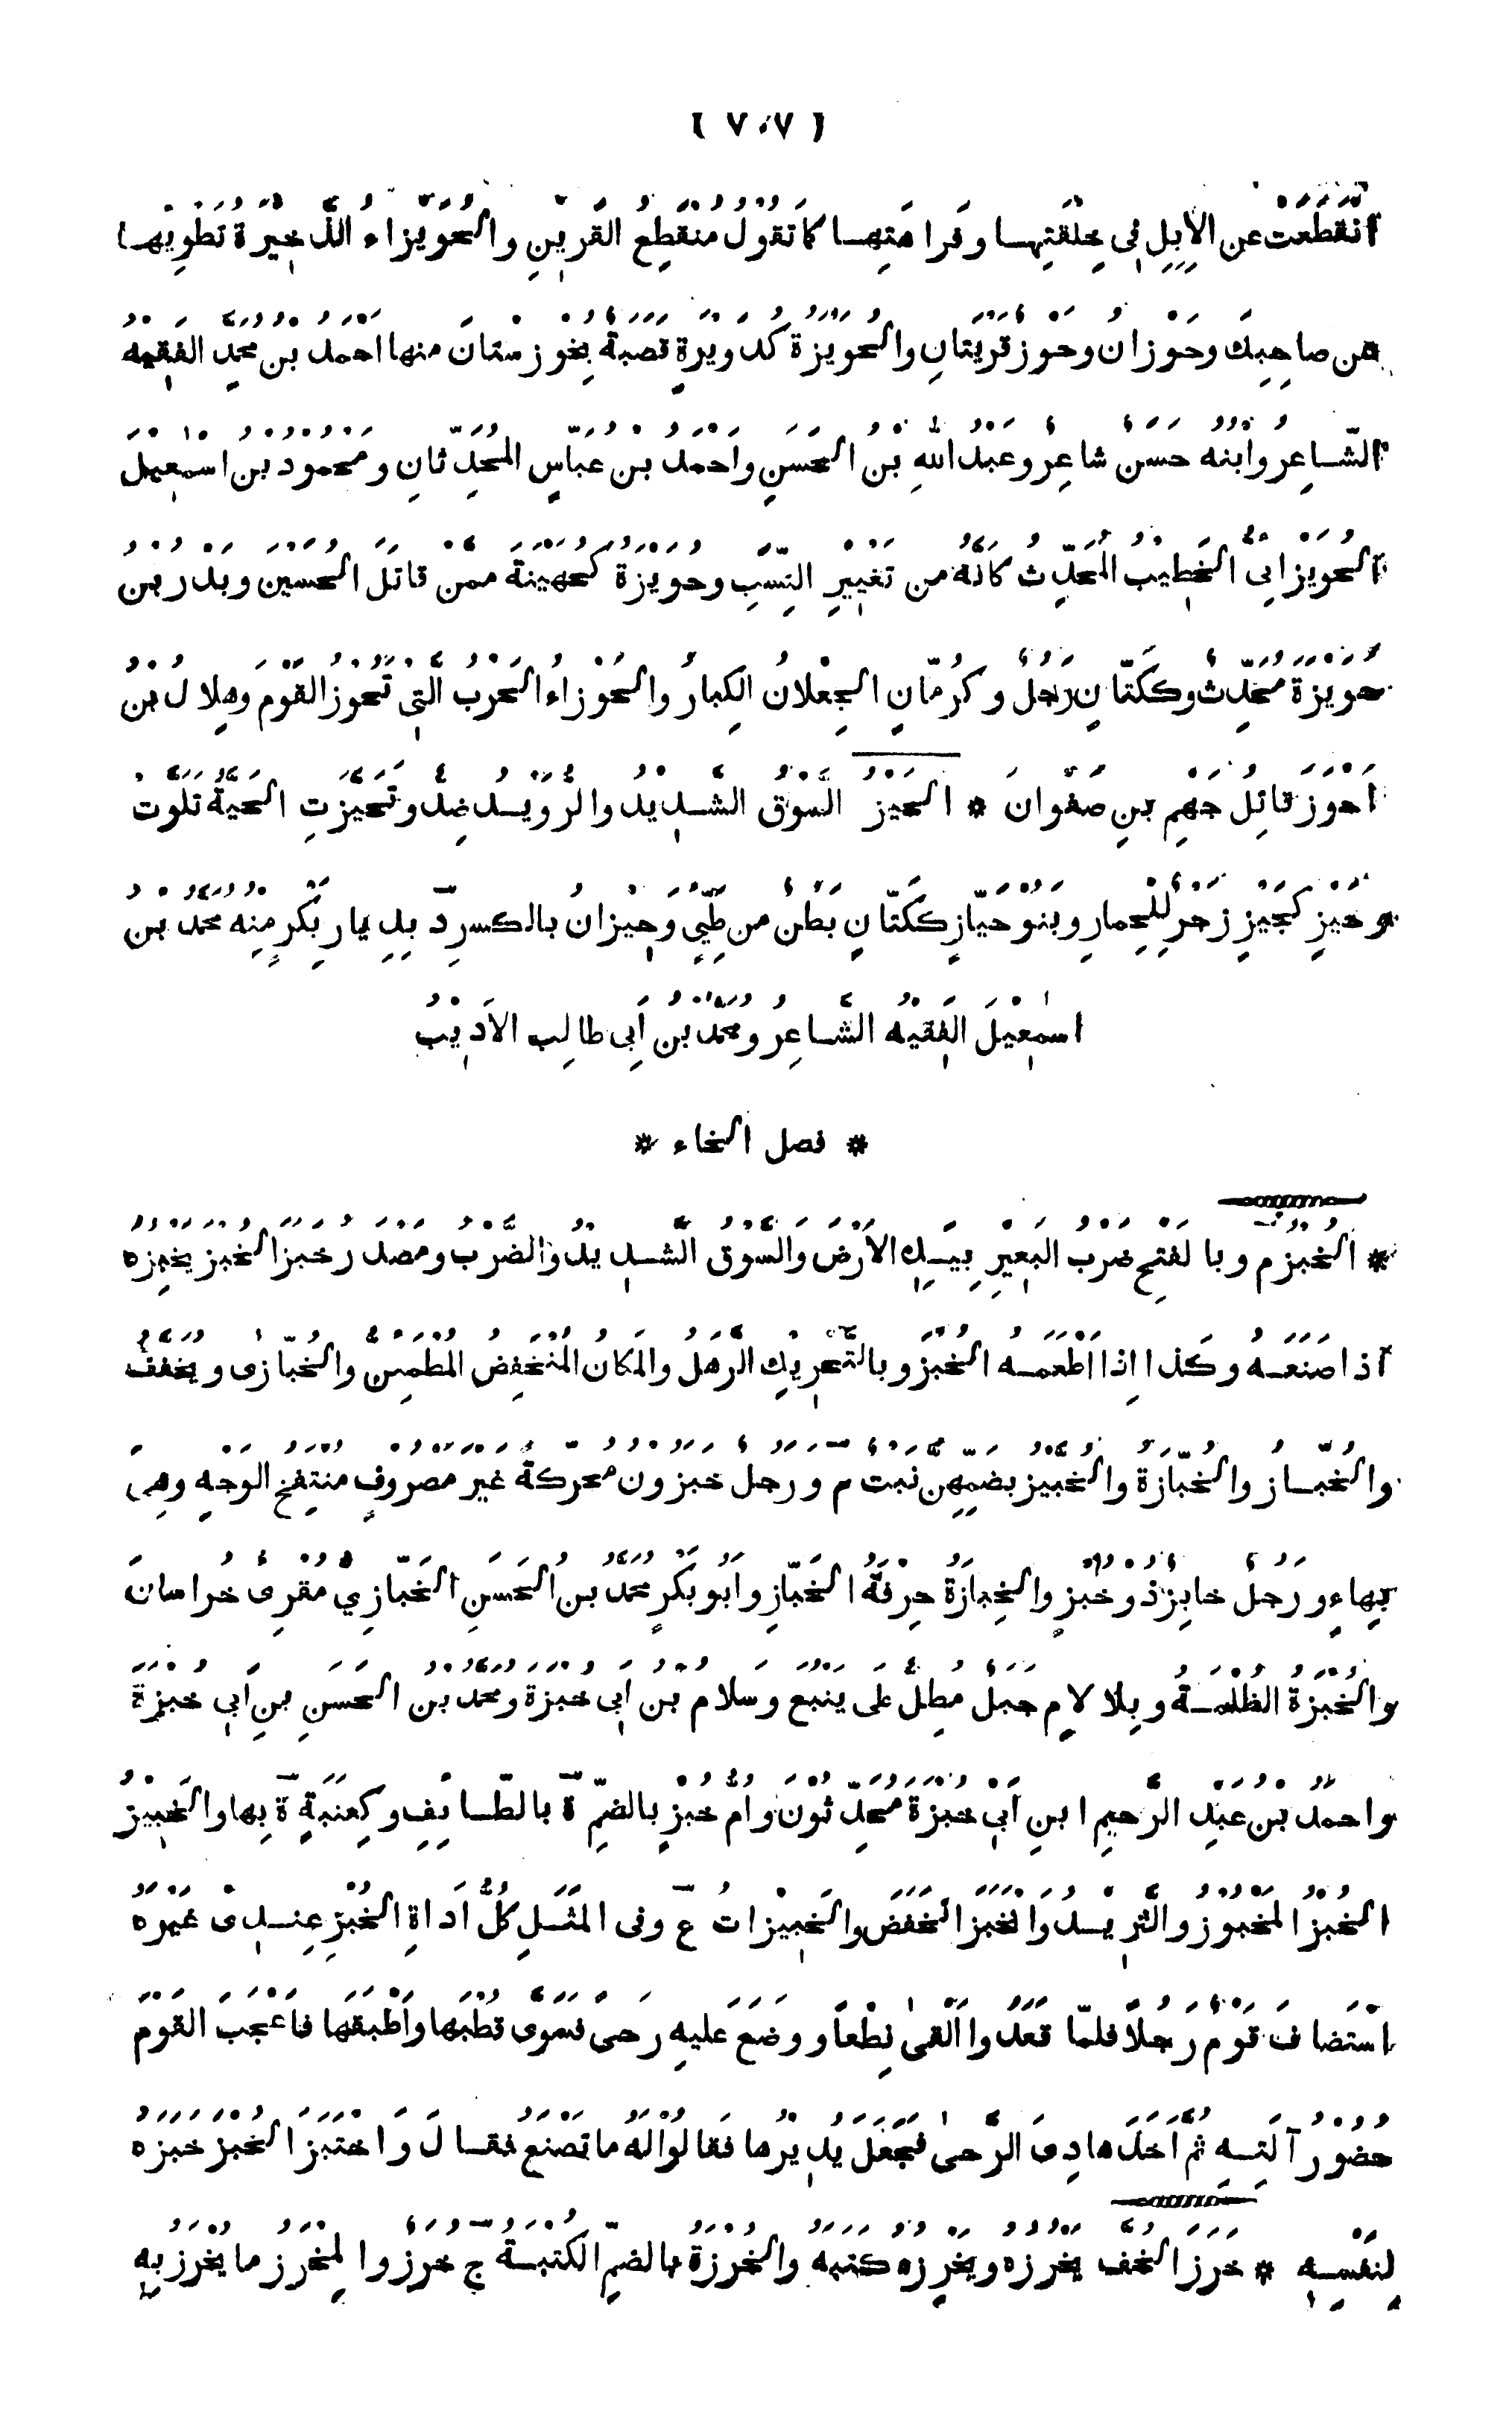 ( ٧٠٧ )
انْقَطَعَتْ عن الاِبِلِ فى خِلْقَتِها وفَراهَتِها كما تَقُولُ مُنْقَطِعُ القَرِيْنِ والحُوَيْزاءُ الذَّخِيْرَةُ تَطْوِيْها
عن صاحِبِكَ وحَوْزانُ وحَوْزٌ قَرْيَتانِ والحُوَيْزَةُ كَدُوَيْرَةٍ قَصَبَةٌ بِخُوْزِسْتانَ منها احمدُ بنُ محمَّدٍ الفَقِيْهُ
الشّاعِرُ وابنُهُ حسنٌ شاعِرٌ وعَبْدُ اللهِ بْنُ الحَسَنِ وأحْمَدُ بنُ عَبّاسٍ المُحَدِّثانِ ومَحْمُودُ بنُ اسْمٰعِيْلَ
الحُوَيْزانِىُّ الخَطِيْبُ المُحَدِّثُ كانَّهُ من تَغْيِيْرِ النَّسَبِ وحُوَيْزَةُ كجُهَيْنَةَ ممّنْ قاتَلَ الحُسَيْنَ وبَدْرُ بنُ
حُوَيْزَةَ مُحَدِّثٌ وكَكَتّانٍ رَجُلٌ وكَرُمّانٍ الجِعْلانُ الكِبارُ والحَوْزاءُ الحَرْبُ التى تَحُوْزُ القَوْمَ وهِلالُ بْنُ
أحْوَزَ قاتِلُ جَهْمِ بنِ صَفْوانَ * الحَيْزُ السَّوْقُ الشَّدِيدُ والرُّوَيْدُ ضِدٌّ وتَحَيَّزَتِ الحَيَّةُ تَلَوَّتْ
وحَيْزِ كجَيْرِ زَجْرٌ لِلْحِمارِ وبَنُو حَيّازٍ كَكَتّانٍ بَطْنٌ من طَيِّىءٍ وحِيْزانُ بالكسرِ د بِدِيارِ بَكْرٍ مِنْهُ محمَّدُ بْنُ
اسْمٰعِيْلَ الفَقِيْهُ الشّاعِرُ ومحمَّدُ بنُ أبى طالِبٍ الأدِيْبُ
* فصل الخاء *
* الخُبْزُ م وبالفَتْحِ ضَرْبُ البَعِيْرِ بِيَدِهِ الأرْضَ والسَّوْقُ الشَّدِيْدُ والضَّرْبُ ومَصْدَرُ خَبَزَ الخُبْزَ يَخْبِزُهُ
اذا صَنَعَهُ وكذا اِذا أطْعَمَهُ الخُبْزَ وبالتَّحْرِيْكِ الرَّهَلُ والمَكانُ المُنْخَفِضُ المُطْمَئِنُّ والخُبّازى ويُخَفَّفُ
والخُبّازُ والخُبّازَةُ والخُبَّيْزُ بضَمِّهِنَّ نَبْتٌ م ورَجُلٌ خَبَزُونُ محركةً غَيْرُ مَصْرُوفٍ مُنْتَفِخُ الوَجْهِ وهى
بِهاءٍ ورَجُلٌ خابِزٌ ذُو خُبْزٍ والخِبازَةُ حِرْفَةُ الخَبّازِ وأبُو بَكْرٍ محمَّدُ بنُ الحَسَنِ الخَبّازِىُّ مُقْرِئُ خُراسانَ
والخُبْزَةُ الظُّلْمَةُ وبِلا لامٍ جَبَلٌ مُطِلٌّ على يَنْبُعَ وسَلامُ بنُ أبى خُبْزَةَ ومحمَّدُ بنُ الحَسَنِ بنِ ابى خُبْزَةَ
واحمدُ بنُ عَبْدِ الرَّحِيمِ ابنِ أبى خُبْزَةَ مُحَدِّثُونَ وأُمُّ خُبْزٍ بالضَمِّ ة بالطّائِفِ وكعِنَبَةٍ ة بها والخَبِيْزُ
الخُبْزُ المَخْبُوزُ والثَّرِيدُ وانْخَبَزَ انْخَفَضَ والخَبِيْزاتُ ع وفى المَثَلِ كُلُّ أداةِ الخُبْزِ عِنْدِى غَيْرَهُ
اسْتَضافَ قَوْمٌ رَجُلاً فلمّا قَعَدُوا ألْقى نِطْعاً ووَضَعَ عَلَيهِ رَحىً فَسَوّى قُطْبَها وأطْبَقَها فأعْجَبَ القَوْمَ
حُضُوْرُ آلَتِهِ ثم أخَذَ هادِىَ الرَّحى فَجَعَلَ يُدِيْرُها فَقالُوا لَهُ ما تَصْنَعُ فقالَ واخْتَبَزَ الخُبْزَ خَبَزَهُ
لِنَفْسِهِ * خَرَزَ الخُفَّ يَخْرُزُهُ ويَخْرِزُهُ كتبه والخُرْزَةُ بالضمِّ الكُتْبَةُ ج خُرَزٌ والمِخْرَزُ ما يُخْرَزُ بِهِ